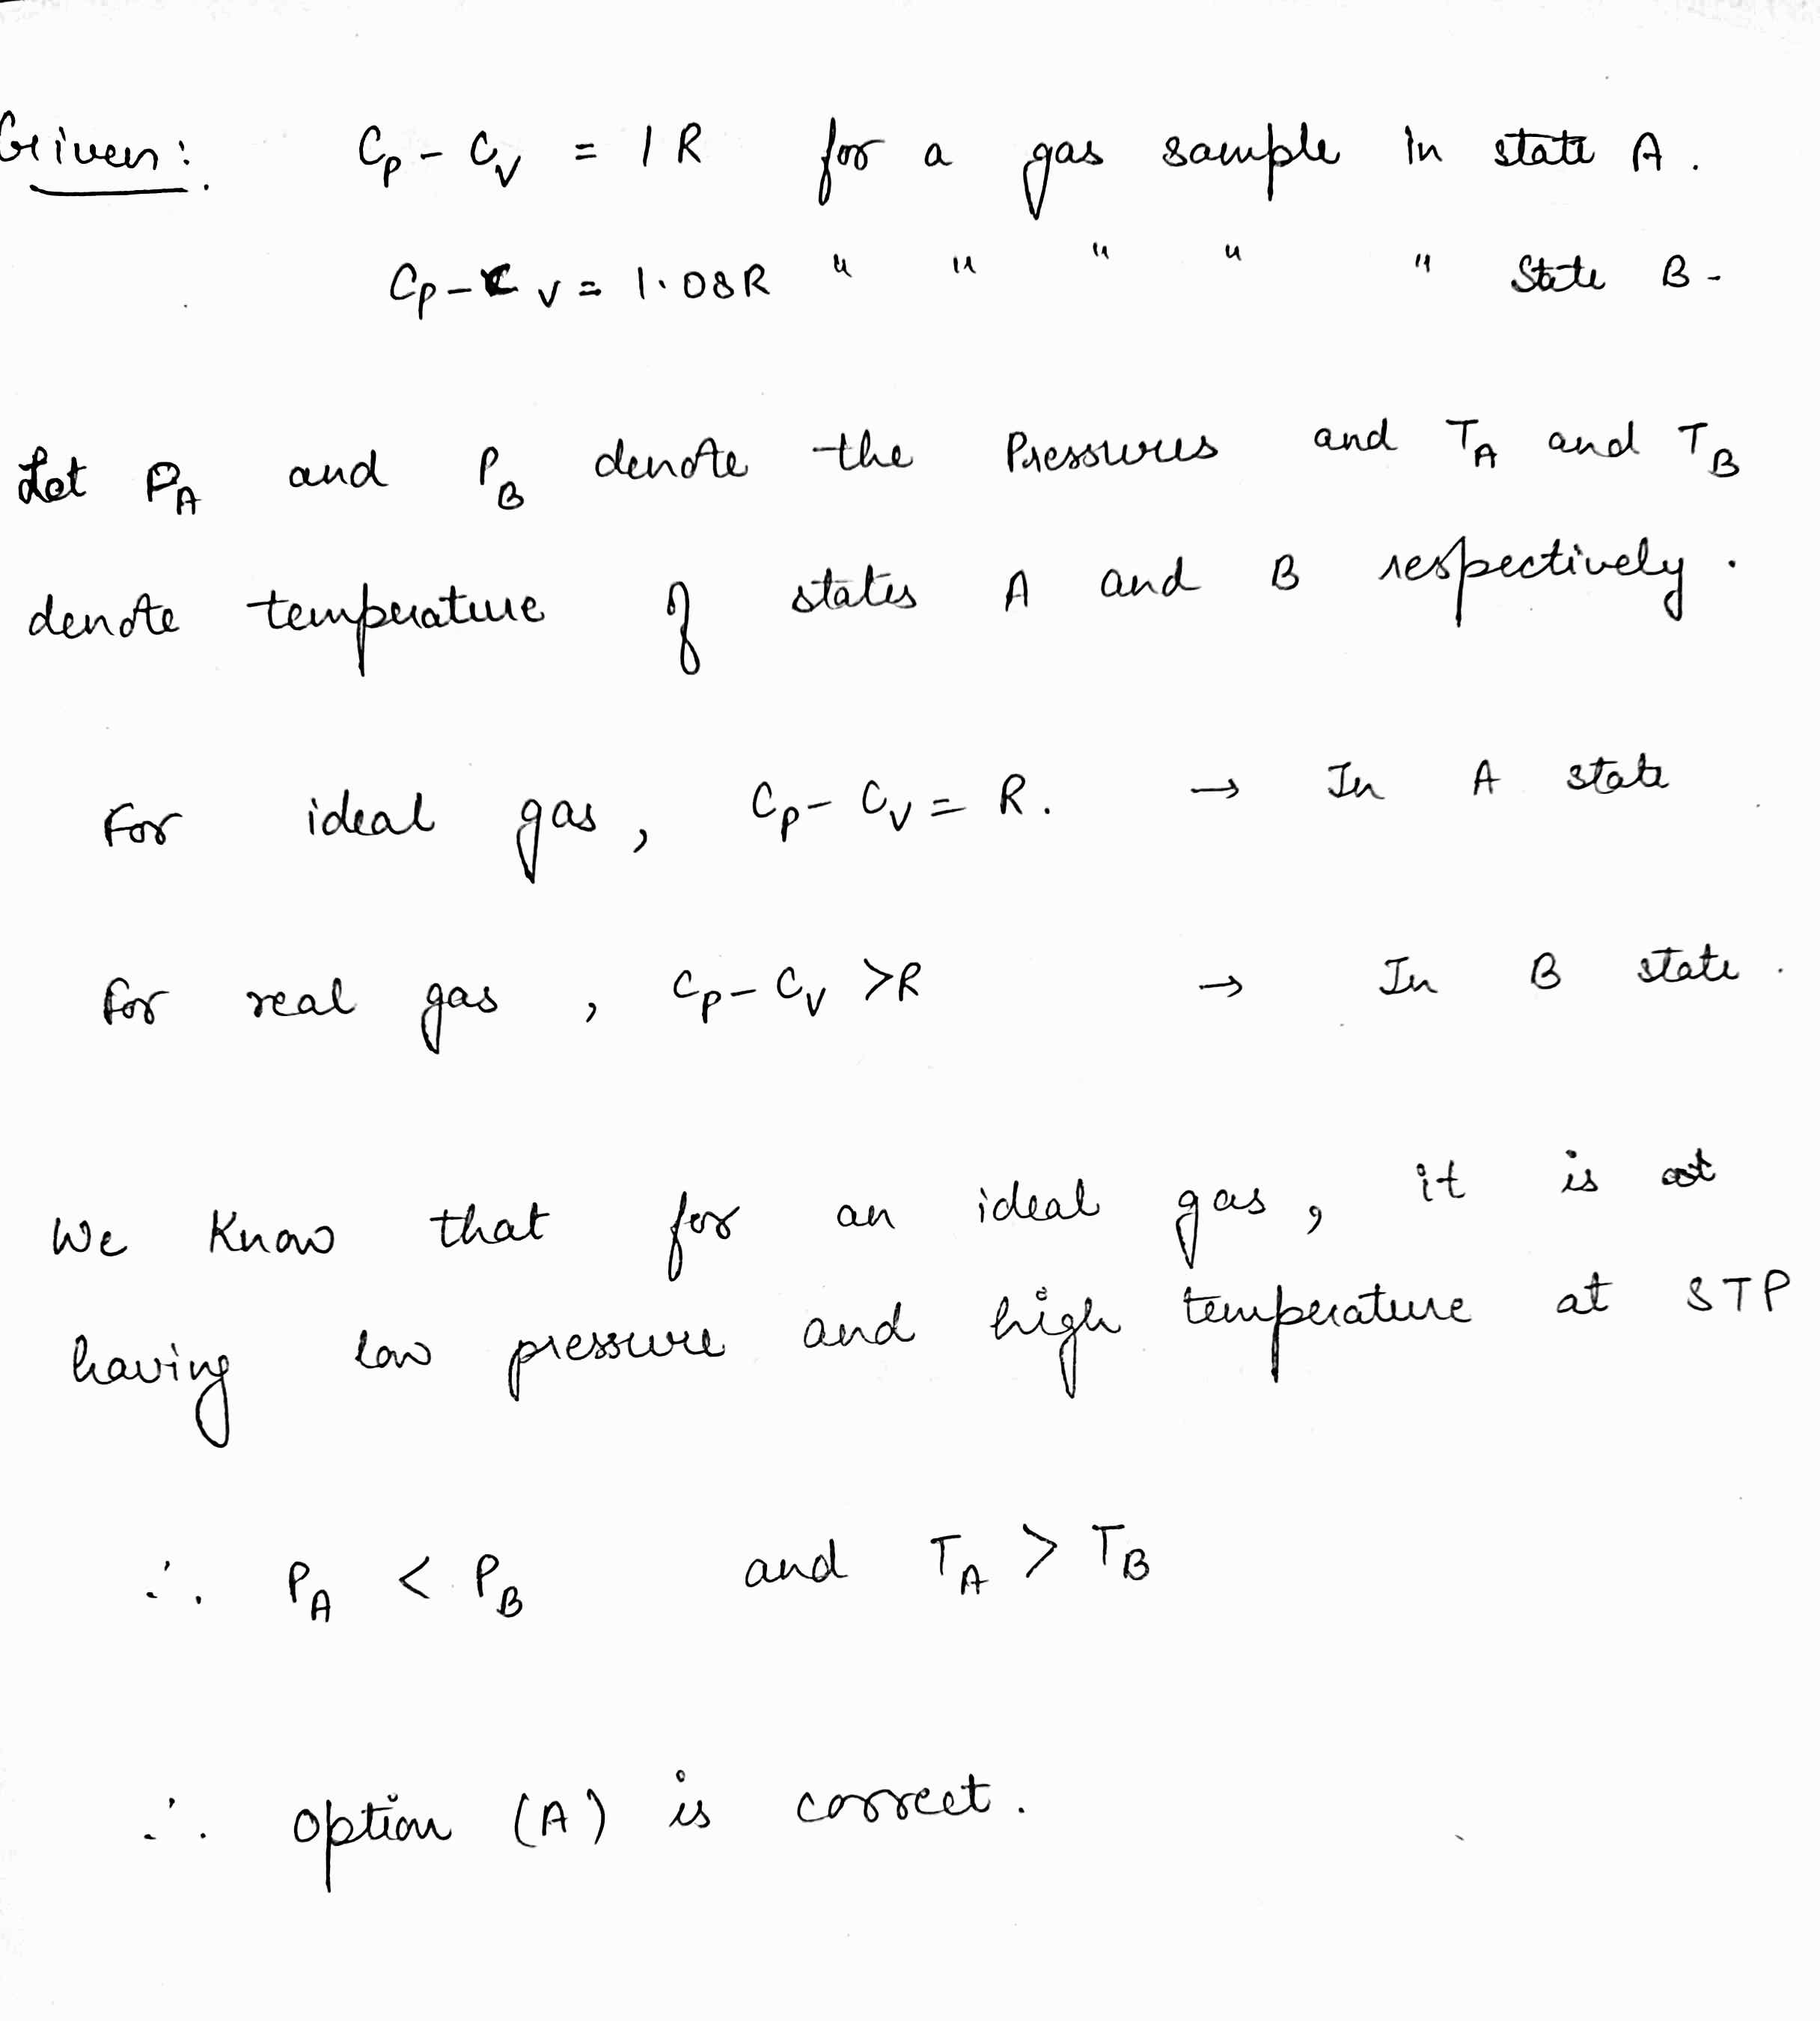 Given: Cp - Cv = 1R for a gas sample in state A.
Cp - Cv = 1.08R " " " " " State B -
Let PA and PB denote the Pressures and TA and TB
denote temperature of states A and B respectively.
For ideal gas, Cp - Cv = R. → In A state
for real gas, Cp - Cv >R → In B state.
We Know that for an ideal gas, it is at
having low pressure and high temperature at STP
∴ PA < PB and TA > TB
∴ option (A) is correct.